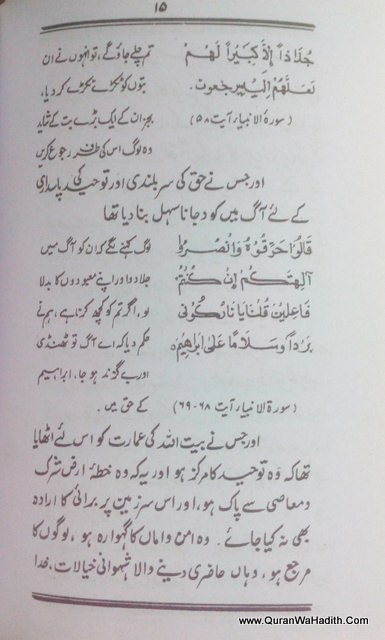 ۱۵
جُذَاذاً إِلَّا كَبِيْراً لَهُمْ
لَعَلَّهُمْ إِلَيْهِ يَرْجِعُونَ.
(سورۃ الانبیاء آیت ۵۸)
تم چلے جاؤ گے، تو انھوں نے ان
بتوں کو ٹکڑے ٹکڑے کر دیا،
بجز ان کے ایک بڑے بت کے شاید
وہ لوگ اس کی طرف رجوع کریں
اور جس نے حق کی سر بلندی اور توحید کی پاسداری
کے لئے آگ میں کود جانا سہل بنا دیا تھا
قَالُوْا حَرِّقُوْهُ وَانْصُرُوْا
آلِهَتَكُمْ إِنْ كُنْتُمْ
فَاعِلِيْنَ قُلْنَا يَا نَارُ كُوْنِي
بَرْداً وَسَلَاماً عَلَىٰ اِبْرَاهِيْمَ
(سورۃ الانبیاء آیت ۶۸-۶۹)
لوگ کہنے لگے کہ ان کو آگ میں
جلا دو اور اپنے معبودوں کا بدلا
لو، اگر تم کو کچھ کرنا ہے، ہم نے
حکم دیا کہ اے آگ تو ٹھنڈی
اور بے گزند ہو جا، ابراہیم
کے حق میں.
اور جس نے بیت اللہ کی عمارت کو اس لئے اٹھایا
تھا کہ وہ توحید کا مرکز ہو اور یہ کہ وہ خطۂ ارض شرک
و معاصی سے پاک ہو، اور اس سرزمین پر برائی کا ارادہ
بھی نہ کیا جائے. وہ امن و اماں کا گہوارہ ہو، لوگوں کا
مرجع ہو، وہاں حاضری دینے والا شہوانی خیالات، خدا
www.QuranWaHadith.Com